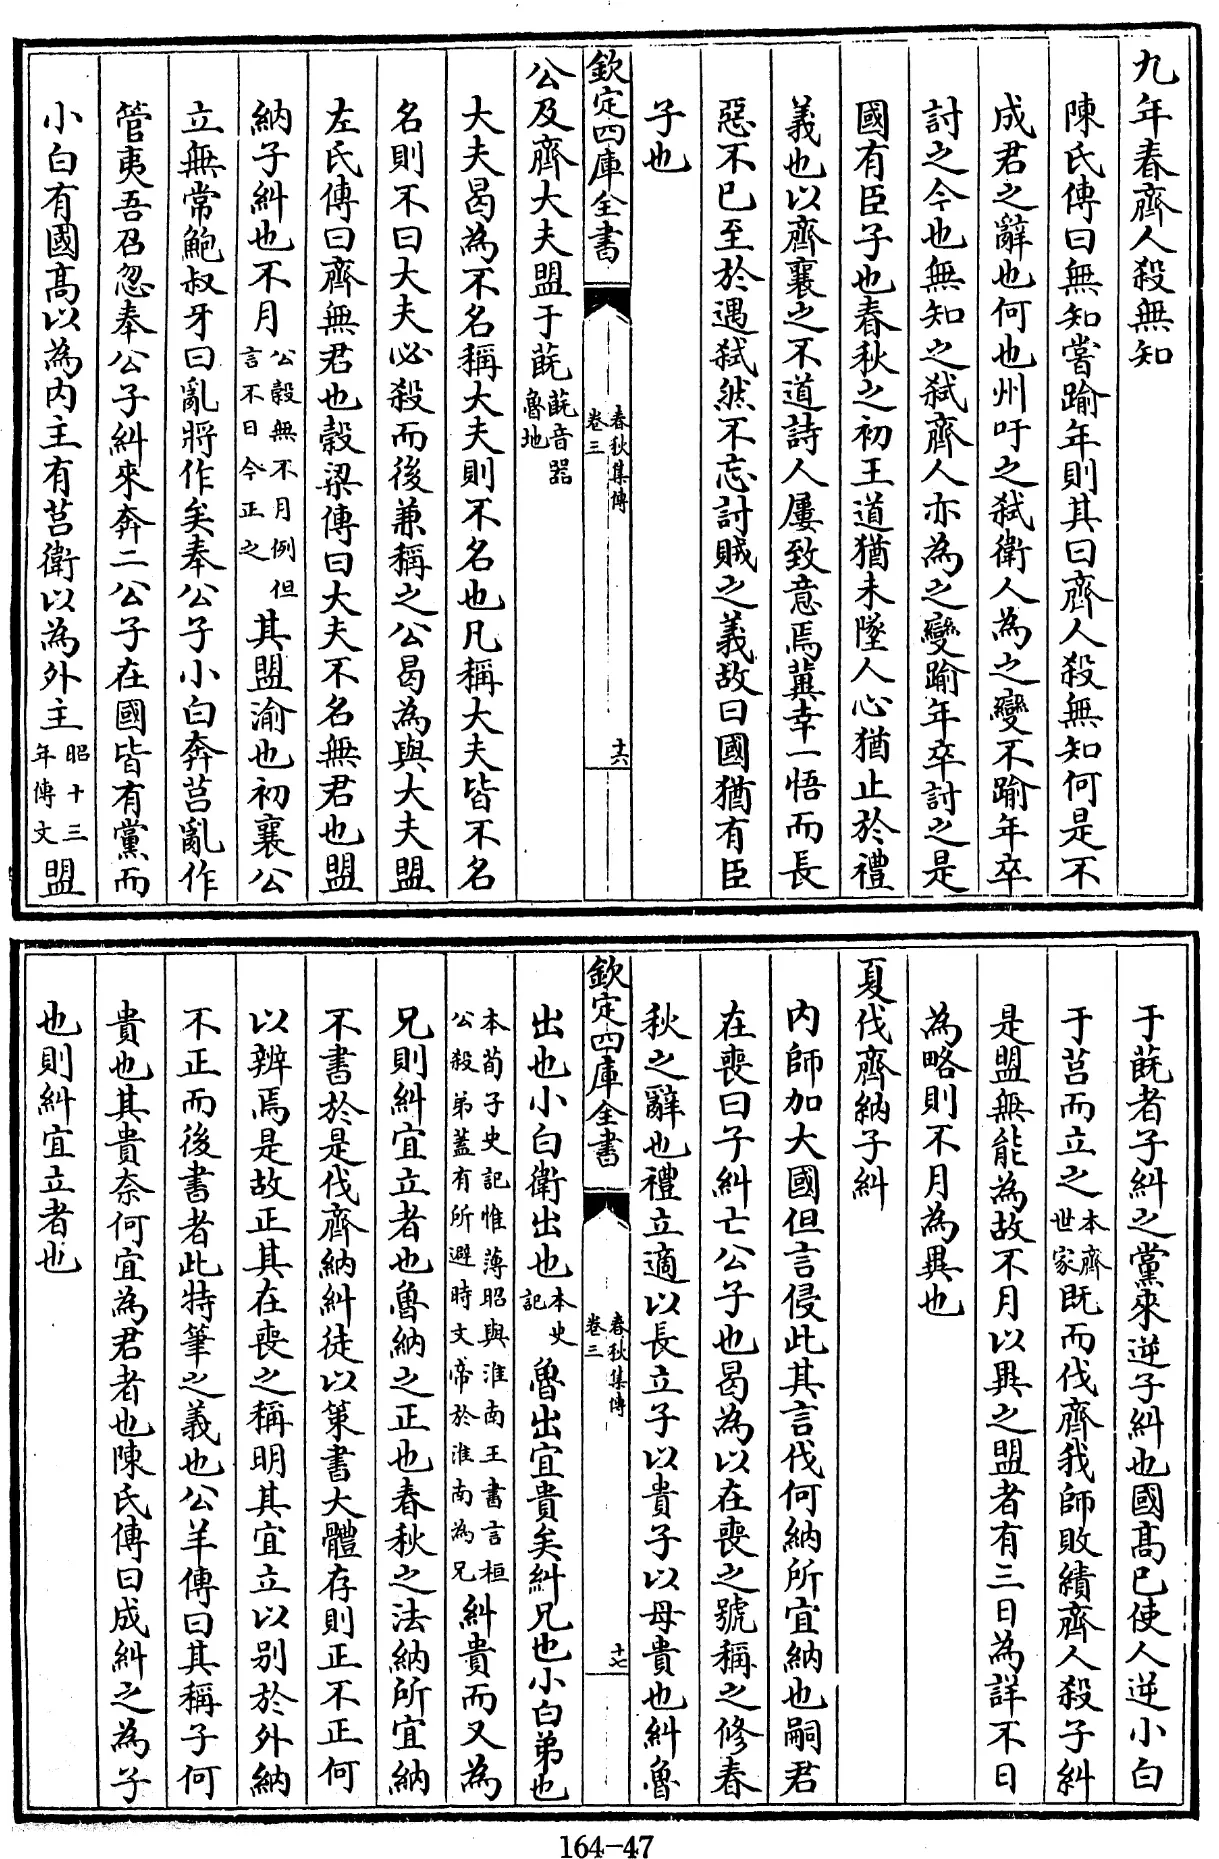 九年春齊人殺無知
陳氏傳曰無知嘗踰年則其曰齊人殺無知何是不
成君之辭也何也州吁之弑衛人為之變不踰年卒
討之今也無知之弑齊人亦為之變踰年卒討之是
國有臣子也春秋之初王道猶未墜人心猶止於禮
義也以齊襄之不道詩人屢致意焉冀幸一悟而長
惡不已至於遇弑然不忘討賊之義故曰國猶有臣
子也
欽定四庫全書
春秋集傳
卷三
十六
公及齊大夫盟于蔇蔇音器魯地
大夫曷為不名稱大夫則不名也凡稱大夫皆不名
名則不曰大夫必殺而後兼稱之公曷為與大夫盟
左氏傳曰齊無君也穀梁傳曰大夫不名無君也盟
納子糾也不月公穀無不月例但言不日今正之其盟渝也初襄公
立無常鮑叔牙曰亂將作矣奉公子小白奔莒亂作
管夷吾召忽奉公子糾來奔二公子在國皆有黨而
小白有國高以為内主有莒衛以為外主昭十三年傳文盟
于蔇者子糾之黨來逆子糾也國高已使人逆小白
于莒而立之本齊世家既而伐齊我師敗績齊人殺子糾
是盟無能為故不月以異之盟者有三日為詳不日
為略則不月為異也
夏伐齊納子糾
内師加大國但言侵此其言伐何納所宜納也嗣君
在喪曰子糾亡公子也曷為以在喪之號稱之修春
秋之辭也禮立適以長立子以貴子以母貴也糾魯
欽定四庫全書
春秋集傳
卷三
十七
出也小白衛出也本史記魯出宜貴矣糾兄也小白弟也
本荀子史記惟薄昭與淮南王書言桓公殺弟蓋有所避時文帝於淮南為兄糾貴而又為
兄則糾宜立者也魯納之正也春秋之法納所宜納
不書於是伐齊納糾徒以策書大體存則正不正何
以辨焉是故正其在喪之稱明其宜立以别於外納
不正而後書者此特筆之義也公羊傳曰其稱子何
貴也其貴奈何宜為君者也陳氏傳曰成糾之為子
也則糾宜立者也
164-47